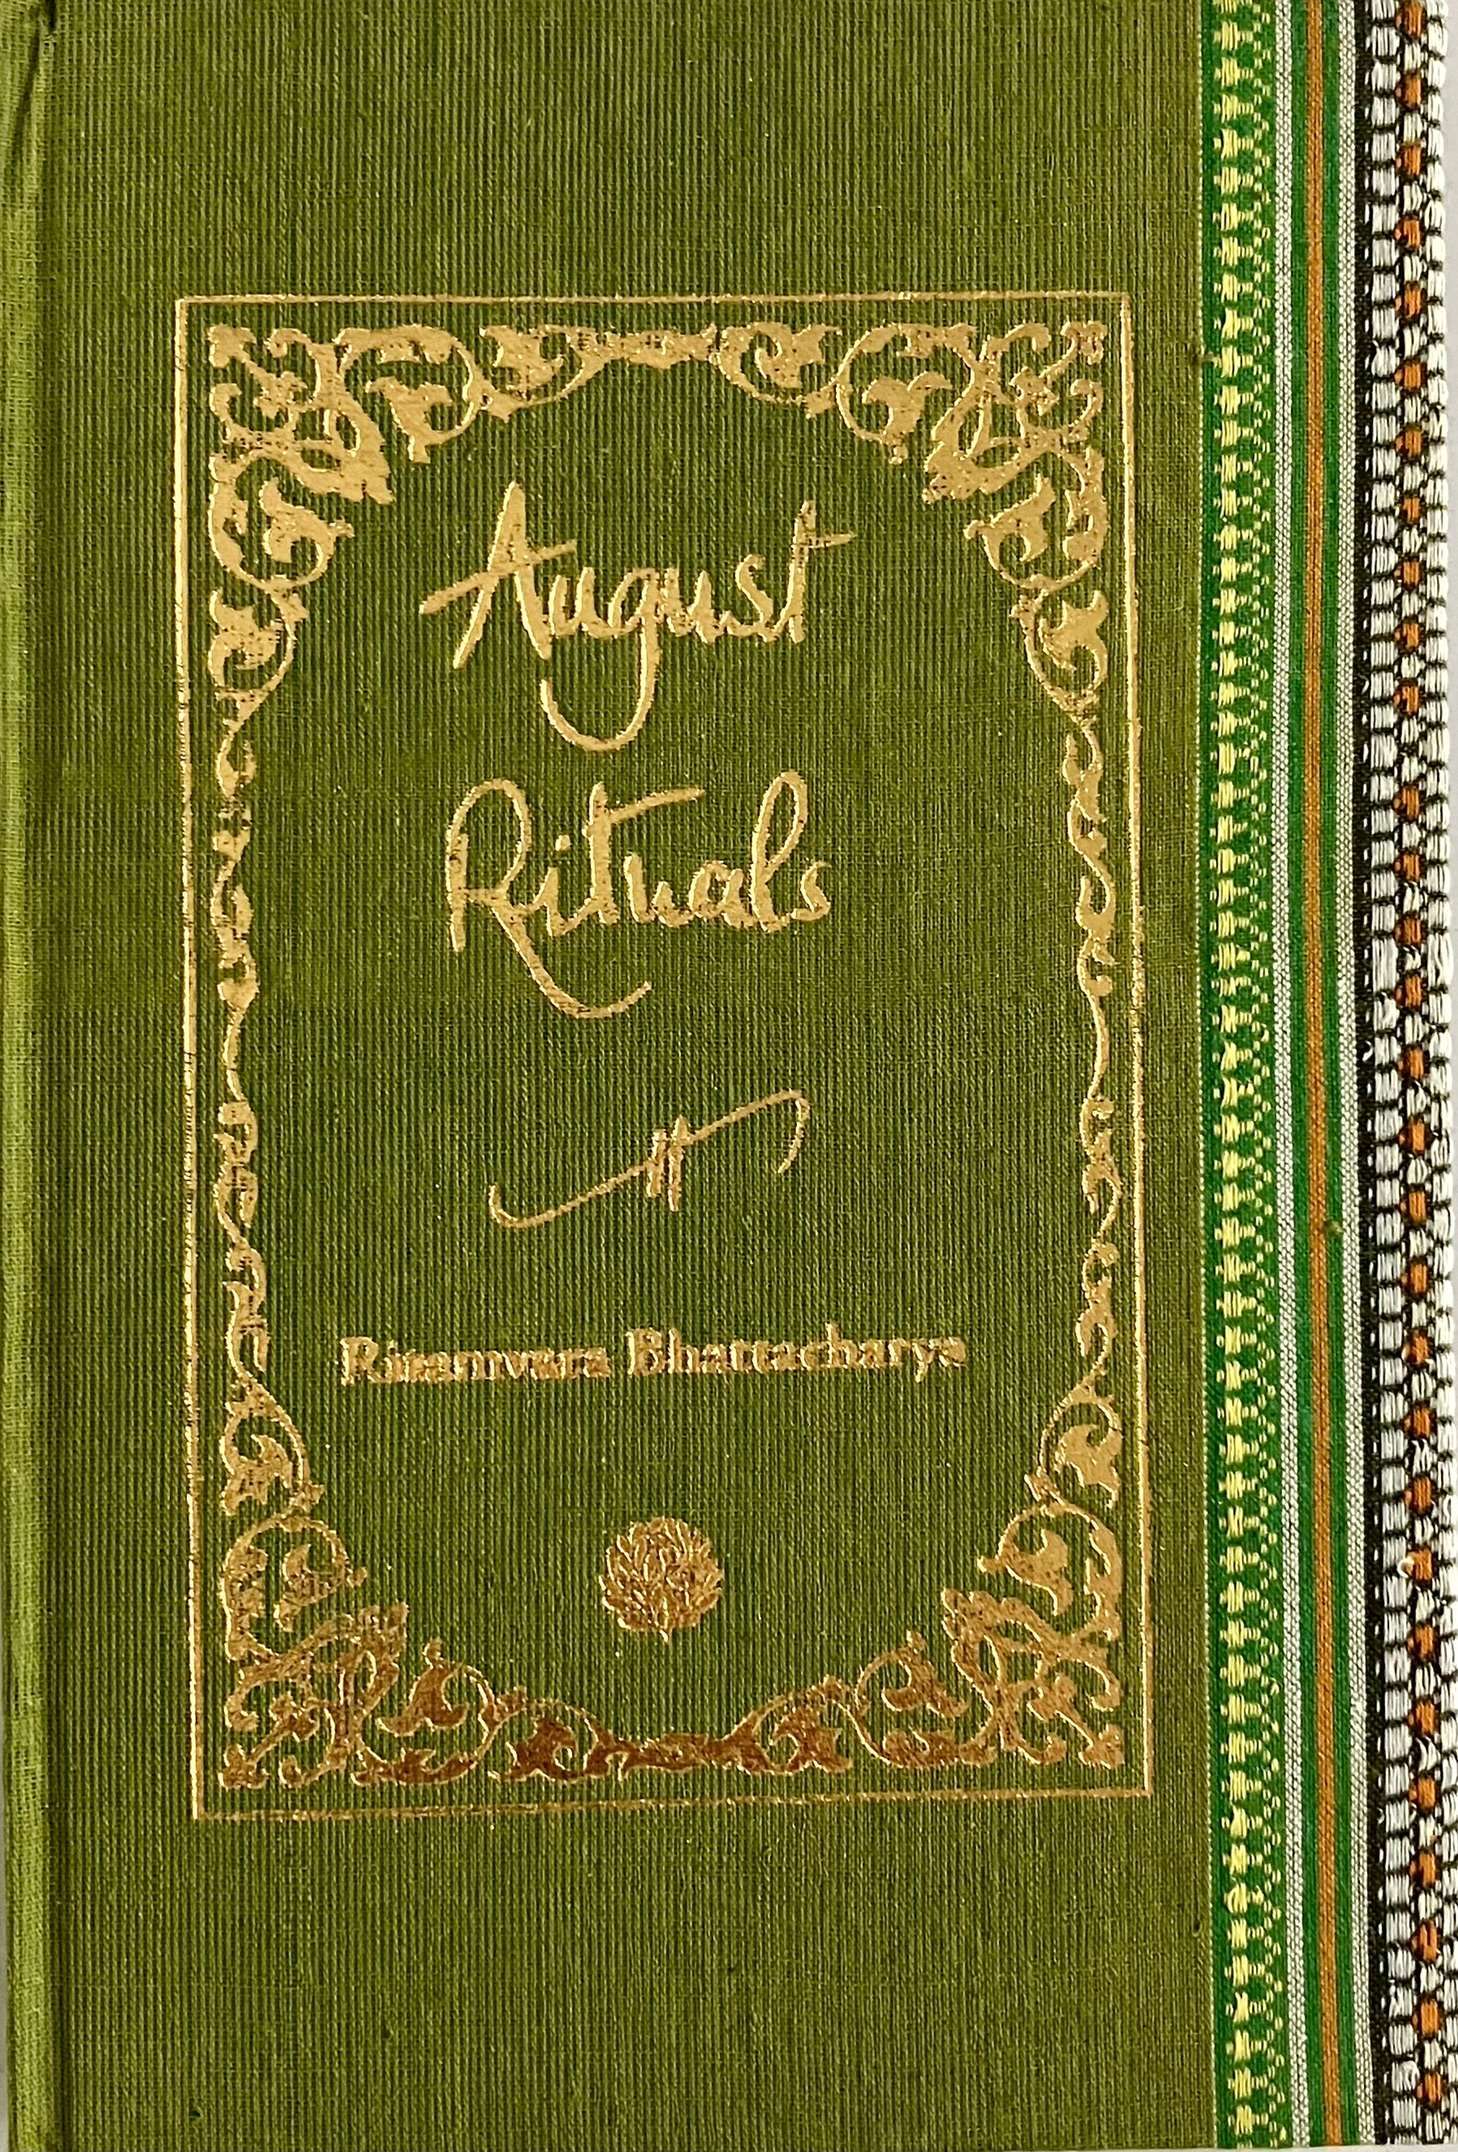 August
Rituals
Ritamvara Bhattacharya